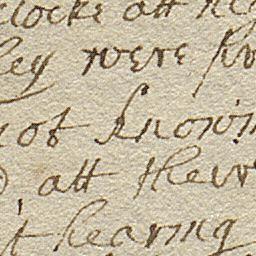 clocke att
hey were
not knowin
att their
t hearing